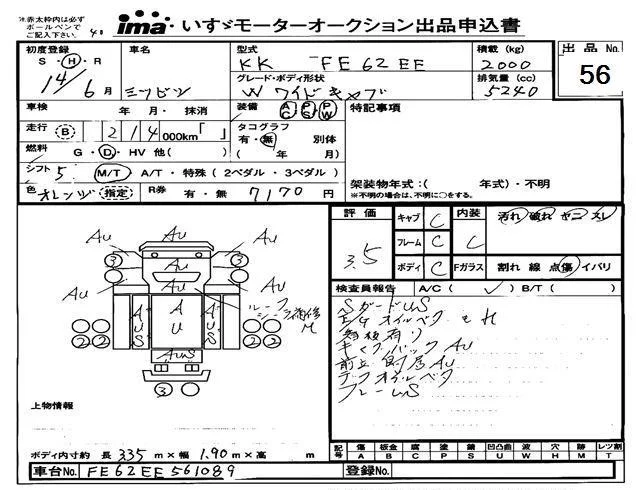 ※.赤太枠内は必ず
ボールペンで
ご記入下さい。
40
ima いすゞモーターオークション出品申込書
初度登録 車名 型式 積載(kg) 出品No.
S・H・R KK FE62EE 2000 56
14/6月 ミツビシ グレード・ボディ形状 排気量(cc)
W ワイドキャブ 5240
車検 年 月・抹消 装備 AC・PS・PW 特記事項
走行 (B) 214000km「 」 タコグラフ
有・無 別体
( 年 月)
燃料 G・D・HV 他( )
シフト 5 M/T A/T・特殊(2ペダル・3ペダル)
架装物年式:( 年式)・不明
※不明の場合は、不明に○をする。
色 オレンジ 指定 R券 有・無 7170円
評価 キャブ C 内装 汚れ 破れ ヤニ スレ
3.5 フレーム C C
ボディ C Fガラス 割れ 線 点傷 イバリ
検査員報告 A/C( ✓ ) B/T( )
SガードUS
E/Gオイルベタ
有り
AU
テフオイルベタ
フレームUS
AU AU
3 AU 3
AU AU
AUS AU AUS
ルーフ
シーラ補修
M
2 2 2 2
AUS
3
上物情報
ボディ内寸約 長 335m×幅 1.90m×高 m
記号 傷 板金 腐 塗 錆 凹凸曲 波 穴 跡 レツ割
A B C P S U W H M T
車台No. FE62EE561089 登録No.